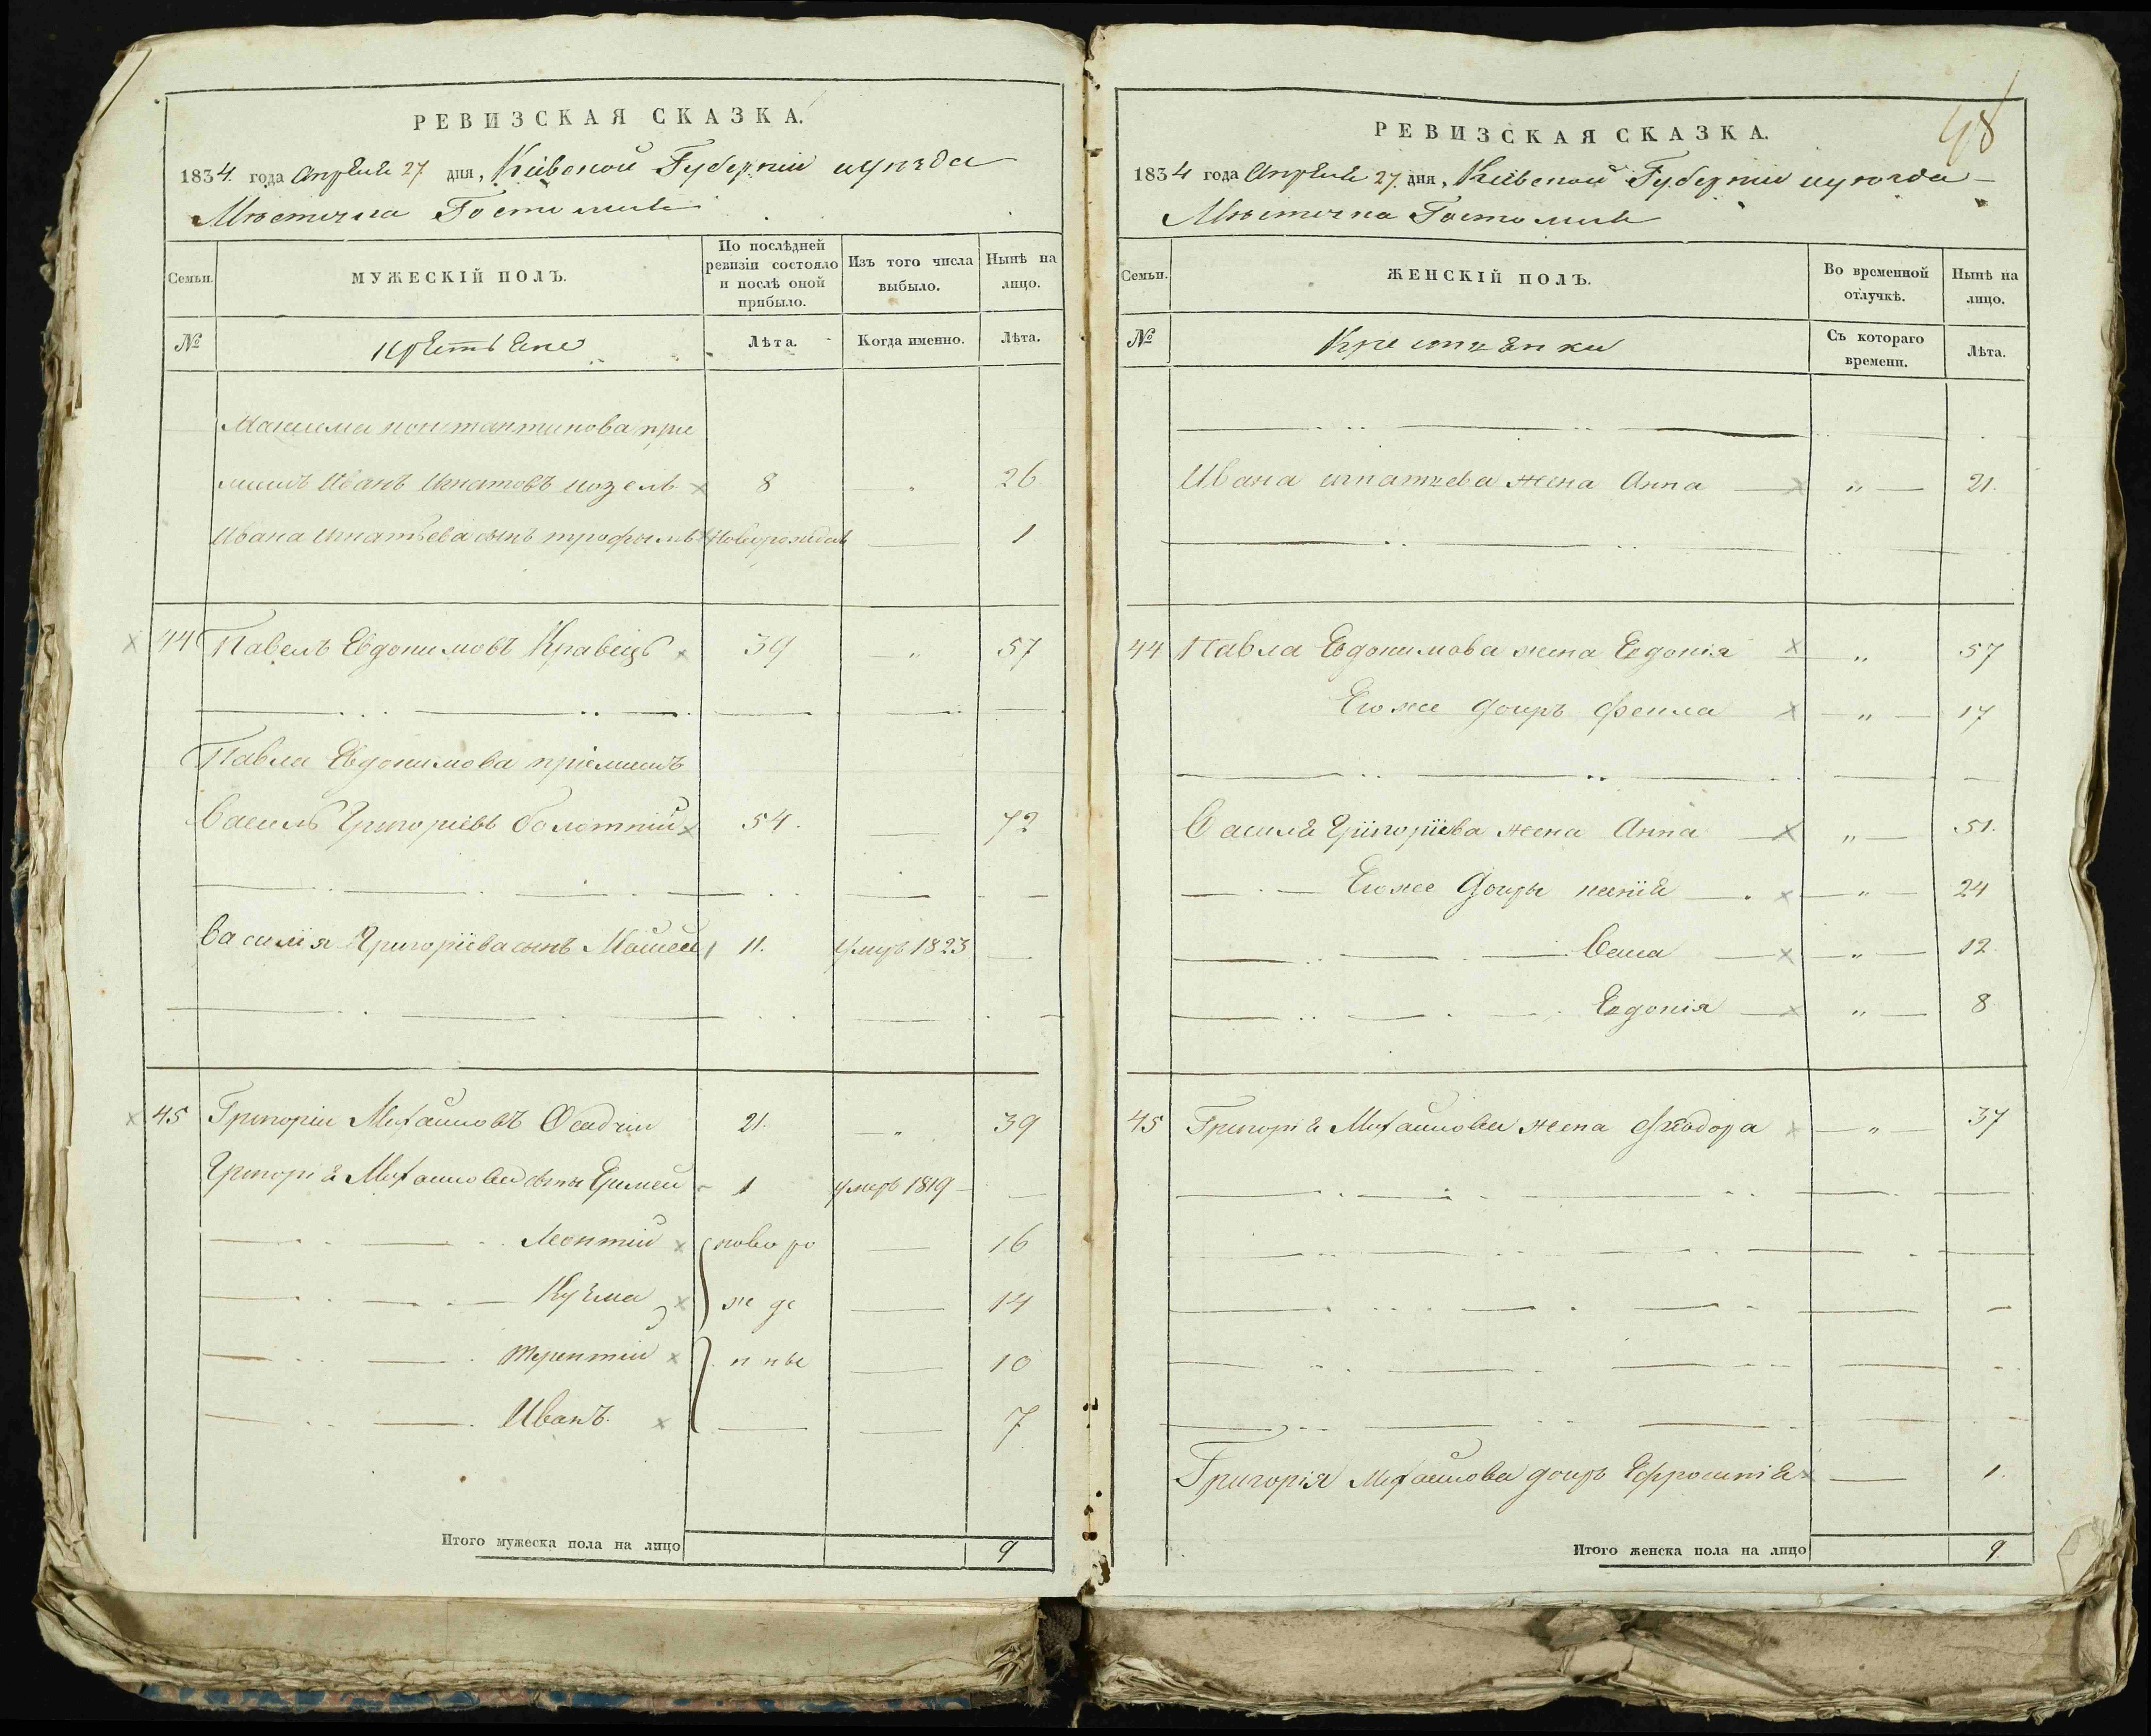 РЕВИЗСКАЯ СКАЗКА.
1834 года Апреля 27 дня, Кіевской Губерніи и уѣзда
Мѣстечка Гостомля
Семьи.
МУЖЕСКІЙ ПОЛЪ.
По послѣдней ревизіи состояло и послѣ оной прибыло.
Изъ того числа выбыло.
Нынѣ на лицо.
№
крестьяне
Лѣта.
Когда именно.
Лѣта.
Максима константинова при
мишъ Иванъ Игнатовъ козелъ 8 26
Ивана Игнатьева сынъ трофымъ новорожден 1
44 Павелъ Евдокимовъ Кравецъ 39 „ 57
Павла Евдокимова пріемишъ
Василь Григоріевъ болотній 54. 72
Василія Григоріева сынъ Моисей 11. умеръ 1823
45 Григорій Михаиловъ Осадчій 21. „ 39
Григорія Михаилова сыны 1 умеръ 1819
Леонтій новоро 16
Кузма жде 14
терентій нные 10
Иванъ. 7
Итого мужеска пола на лицо 9
48
РЕВИЗСКАЯ СКАЗКА.
1834 года Апреля 27 дня, Кіевской Губерніи и уѣзда
Мѣстечка Гостомля
Семьи.
ЖЕНСКІЙ ПОЛЪ.
Во временной отлучкѣ.
Нынѣ на лицо.
№
Крестьянки
Съ котораго времени.
Лѣта.
Ивана игнатьева жена Анна „ 21.
44 Павла Евдокимова жена Евдокія „ 57
Его же дочрь Фекла „ 17
Василія Григоріева жена Анна „ 51.
Его же дочры „ 24
„ 12
Евдокія „ 8
45 Григорія Михаилова жена Феодора „ 37
Григорія Михаилова дочрь Ефросинія 1.
Итого женска пола на лицо 9